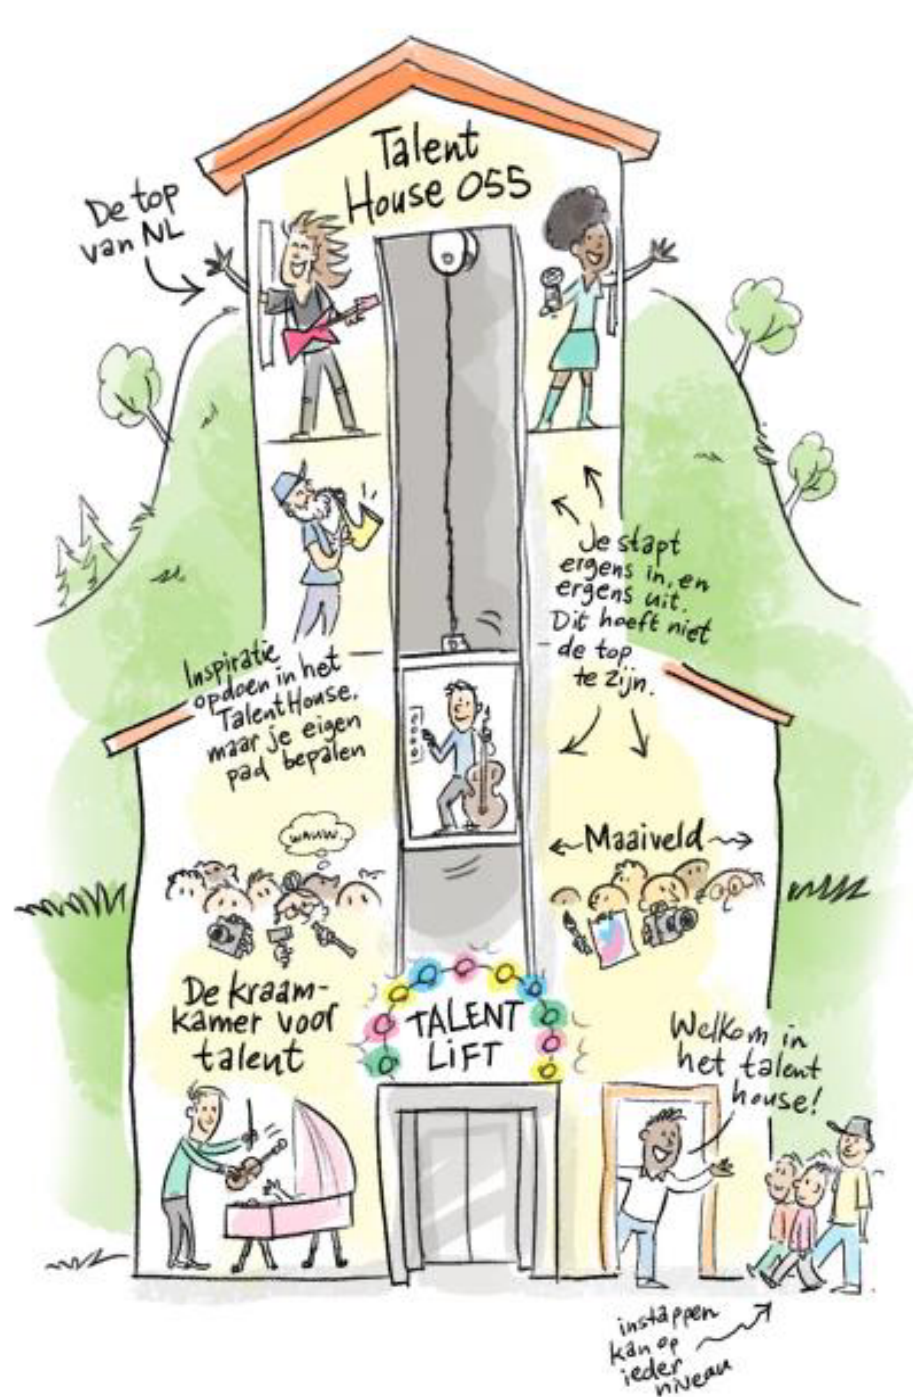 Talent
House 055
De top
van NL
Je stapt
ergens in, en
ergens uit.
Dit hoeft niet
de top
te zijn.
Inspiratie
opdoen in het
TalentHouse,
maar je eigen
pad bepalen
wauw.
Maaiveld
De kraam-
kamer voor
talent
TALENT
LIFT
Welkom in
het talent
house!
instappen
kan op
ieder
niveau